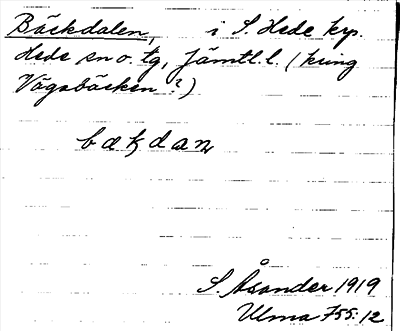 Bäckdalen, i S. Hede kyr.
Hede sn o. tg, Jämtl. l. (kring
Vågabäcken?)
bækdan
S. Åsander 1919
Ulma 755:12